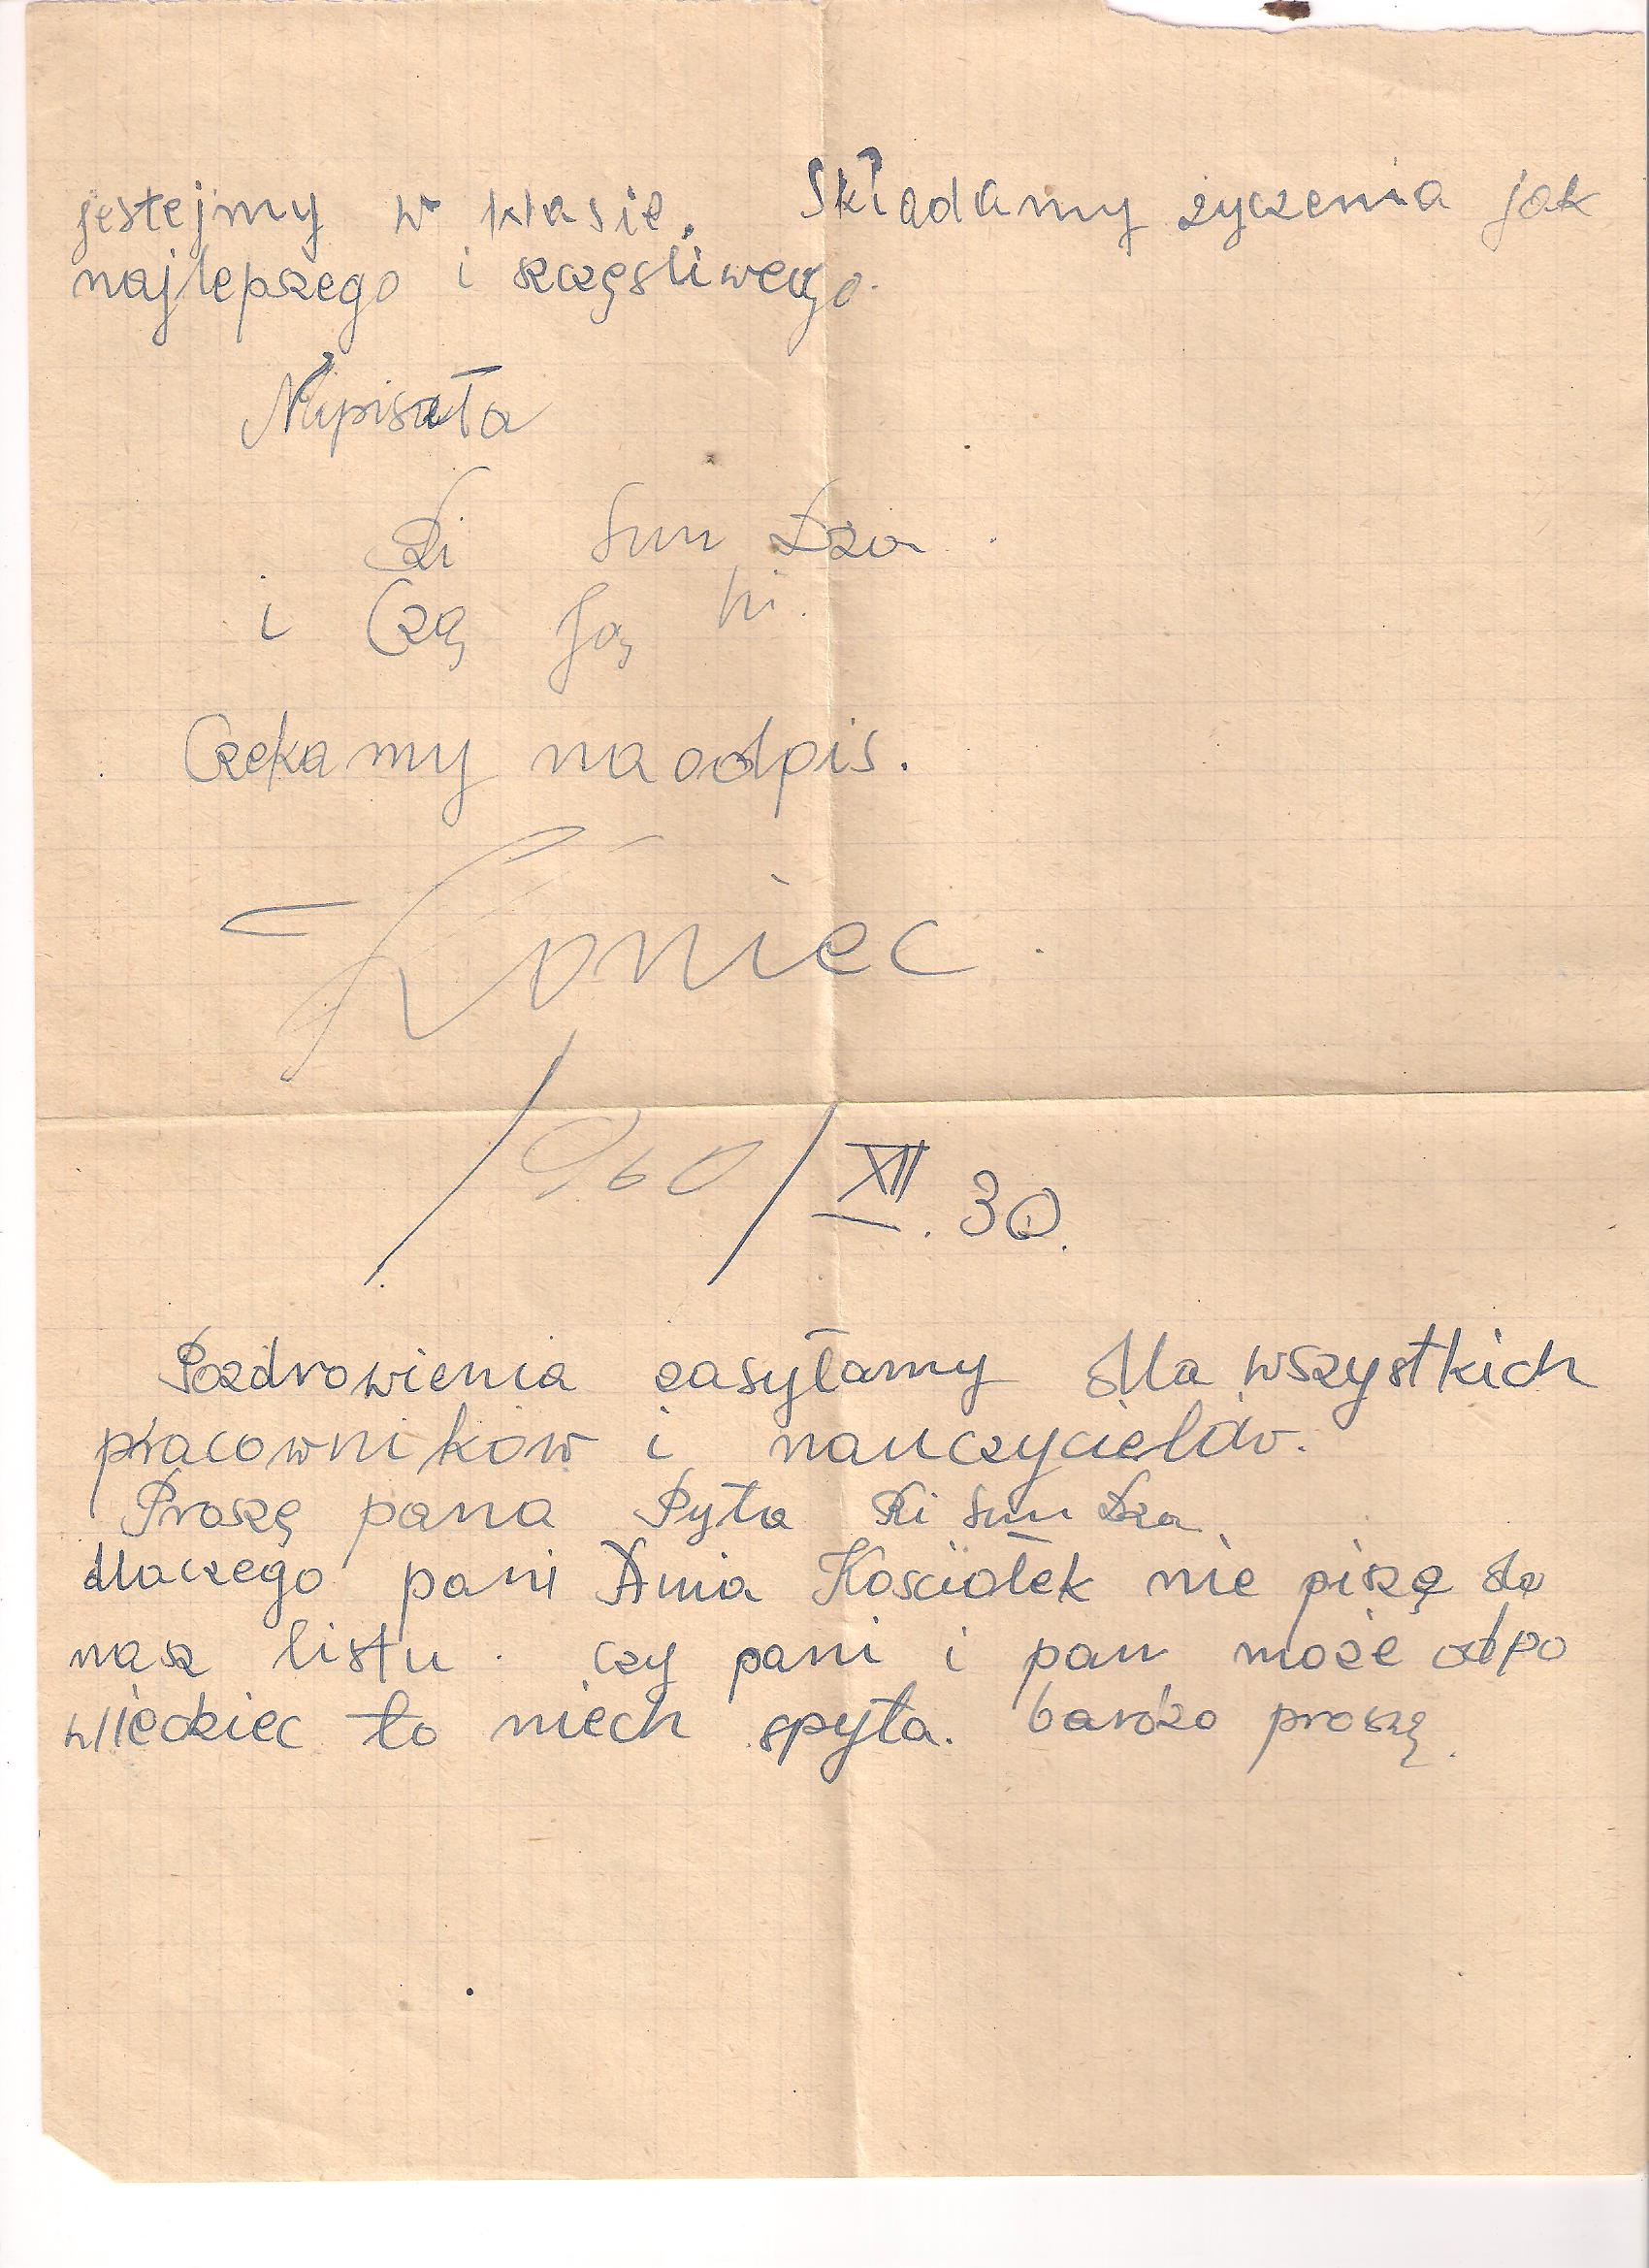 jestejmy w klasie. Składamy życzenia jak
najlepszego i szczęśliwego.
Napisała
Li Sun Dza.
i Czą Ją hi.
Czekamy na odpis.
Koniec.
/960/XII. 30.
Pozdrowienia zasyłamy dla wszystkich
pracowników i nauczycielów.
Proszę pana Pyta Ri Sun Dza
dlaczego pani Ania Kosciołek nie piszę do
nasz listu. czy pani i pan może odpo
wiedziec to niech spyta. bardzo proszę.